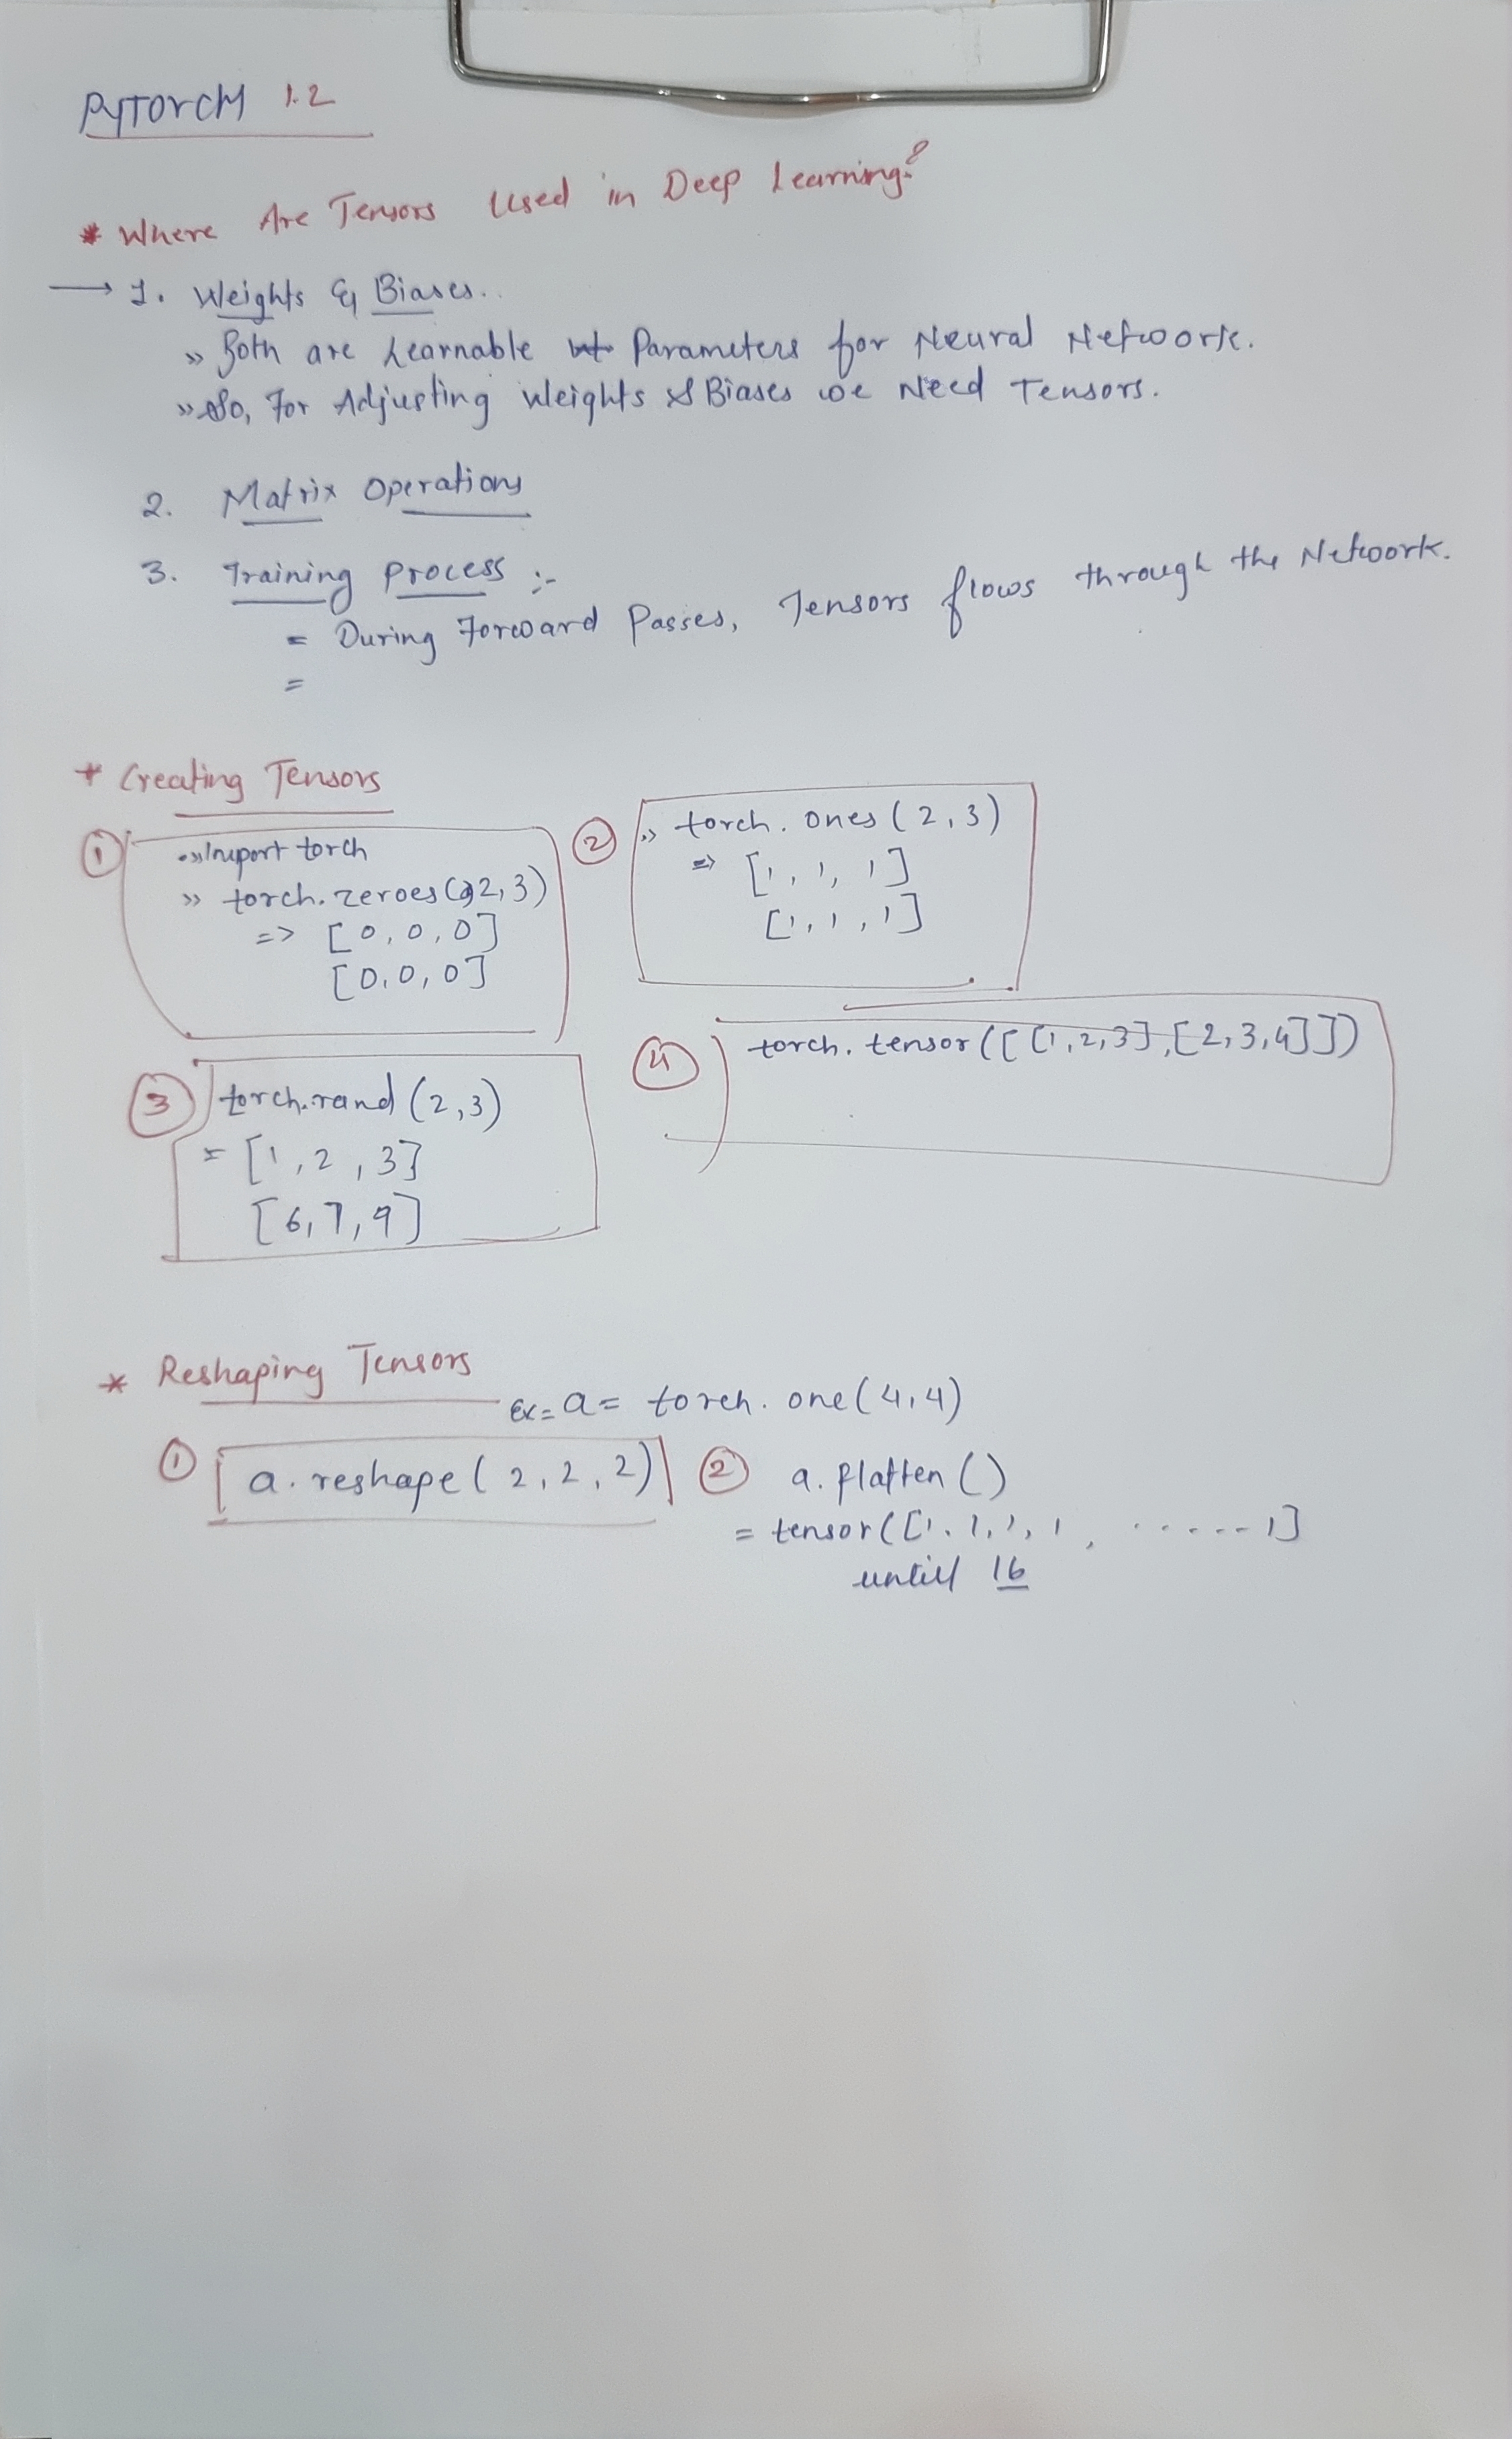 PYTORCH 1.2
* Where Are Tensors Used in Deep Learning?
→ 1. Weights & Biases.
» Both are Learnable Parameters for Neural Network.
» So, For Adjusting Weights & Biases we Need Tensors.
2. Matrix Operations
3. Training Process :-
= During Forward Passes, Tensors flows through the Network.
=
* Creating Tensors
①
» Import torch
» torch.zeroes(2,3)
=> [0,0,0]
[0,0,0]
②
» torch.ones(2,3)
=> [1,1,1]
[1,1,1]
③ torch.rand(2,3)
= [1,2,3]
[6,7,9]
④ torch.tensor([[1,2,3],[2,3,4]])
* Reshaping Tensors
Ex= a= torch.one(4,4)
① a.reshape(2,2,2)
② a.flatten()
= tensor([1.1,1,1, ......1]
until 16